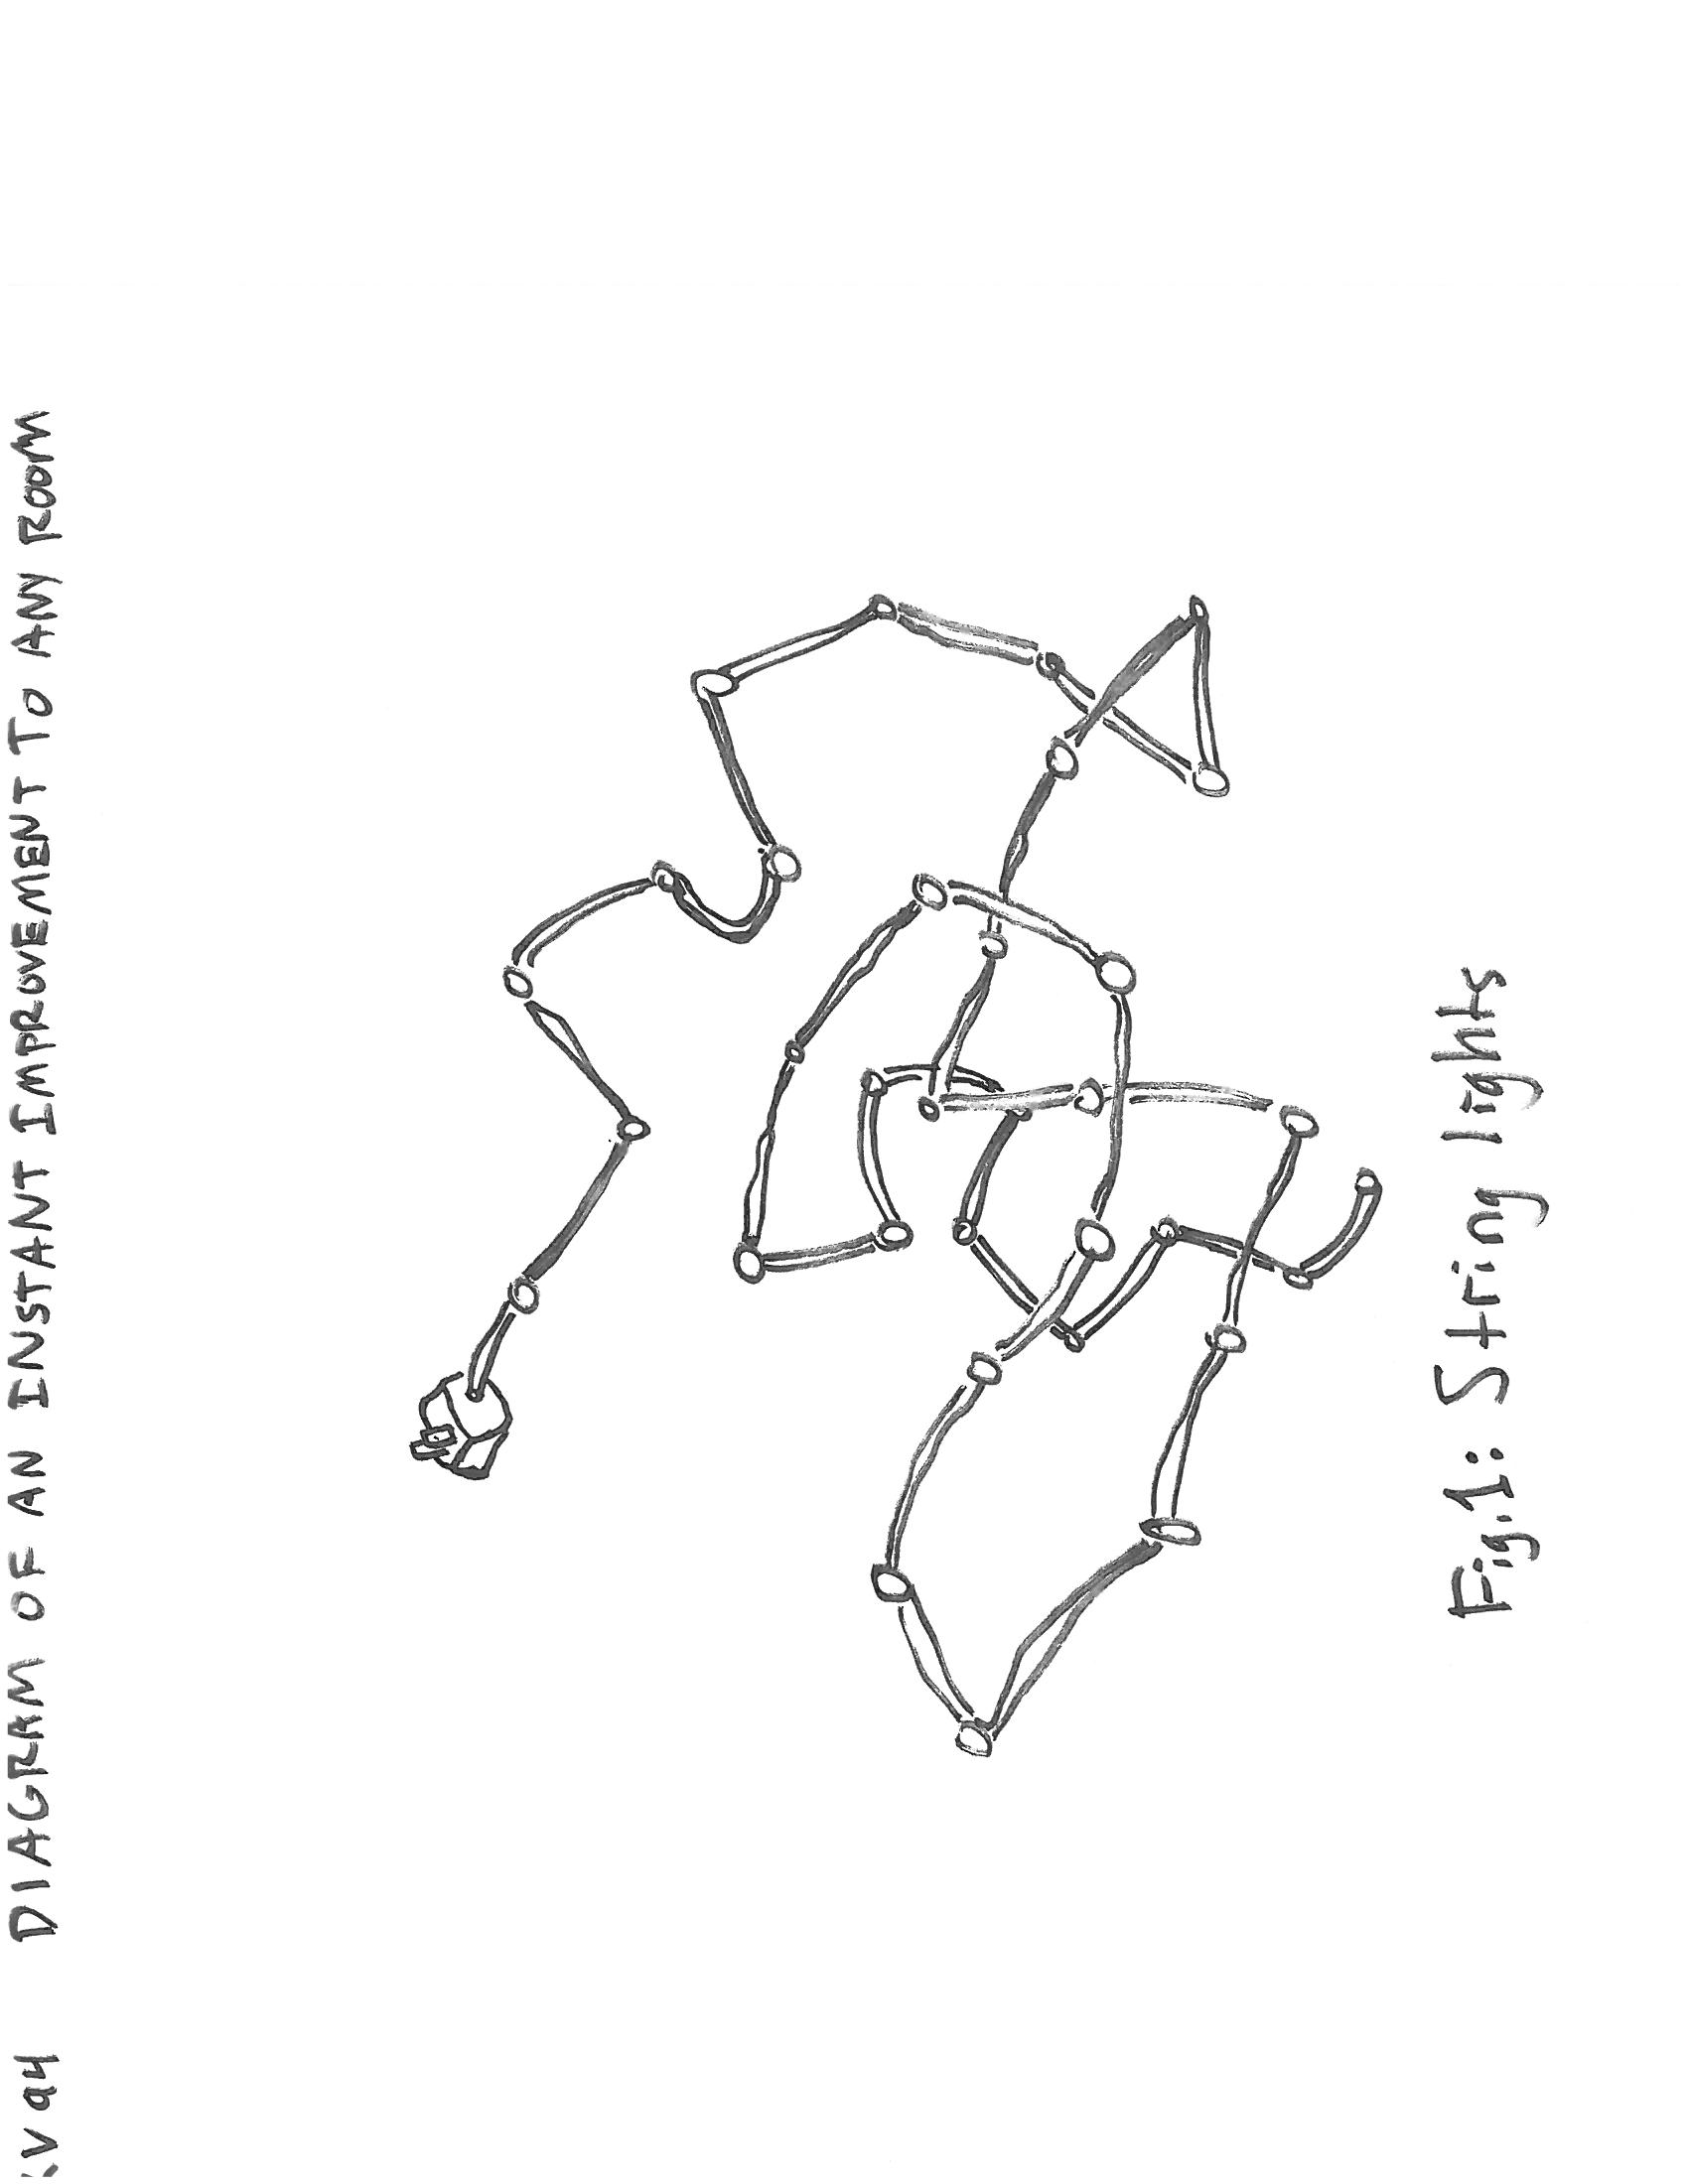 DIAGRAM OF AN INSTANT IMPROVEMENT TO ANY ROOM
Fig.1: String lights